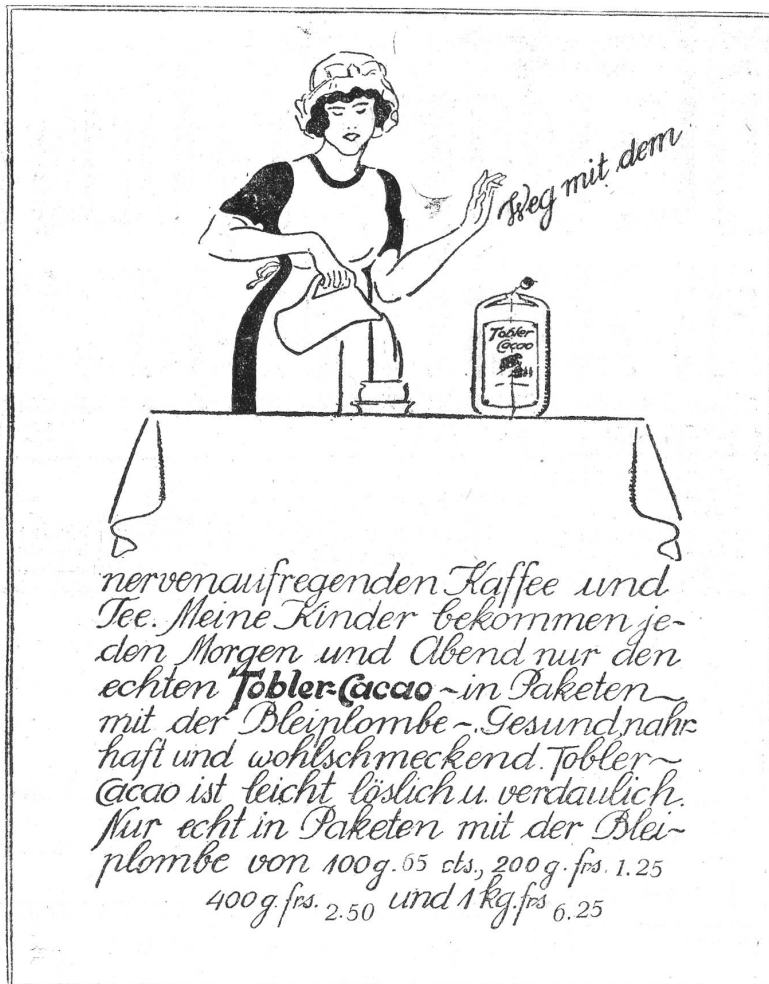 Weg mit dem
Tobler
Cacao
nervenaufregenden Kaffee und
Tee. Meine Kinder bekommen je-
den Morgen und Abend nur den
echten Tobler-Cacao - in Paketen
mit der Bleiplombe -. Gesund, nahr-
haft und wohlschmeckend. Tobler-
Cacao ist leicht löslich u. verdaulich.
Nur echt in Paketen mit der Blei-
plombe von 100 g. 65 cts., 200 g. frs. 1.25
400 g. frs. 2.50 und 1 kg. frs 6.25